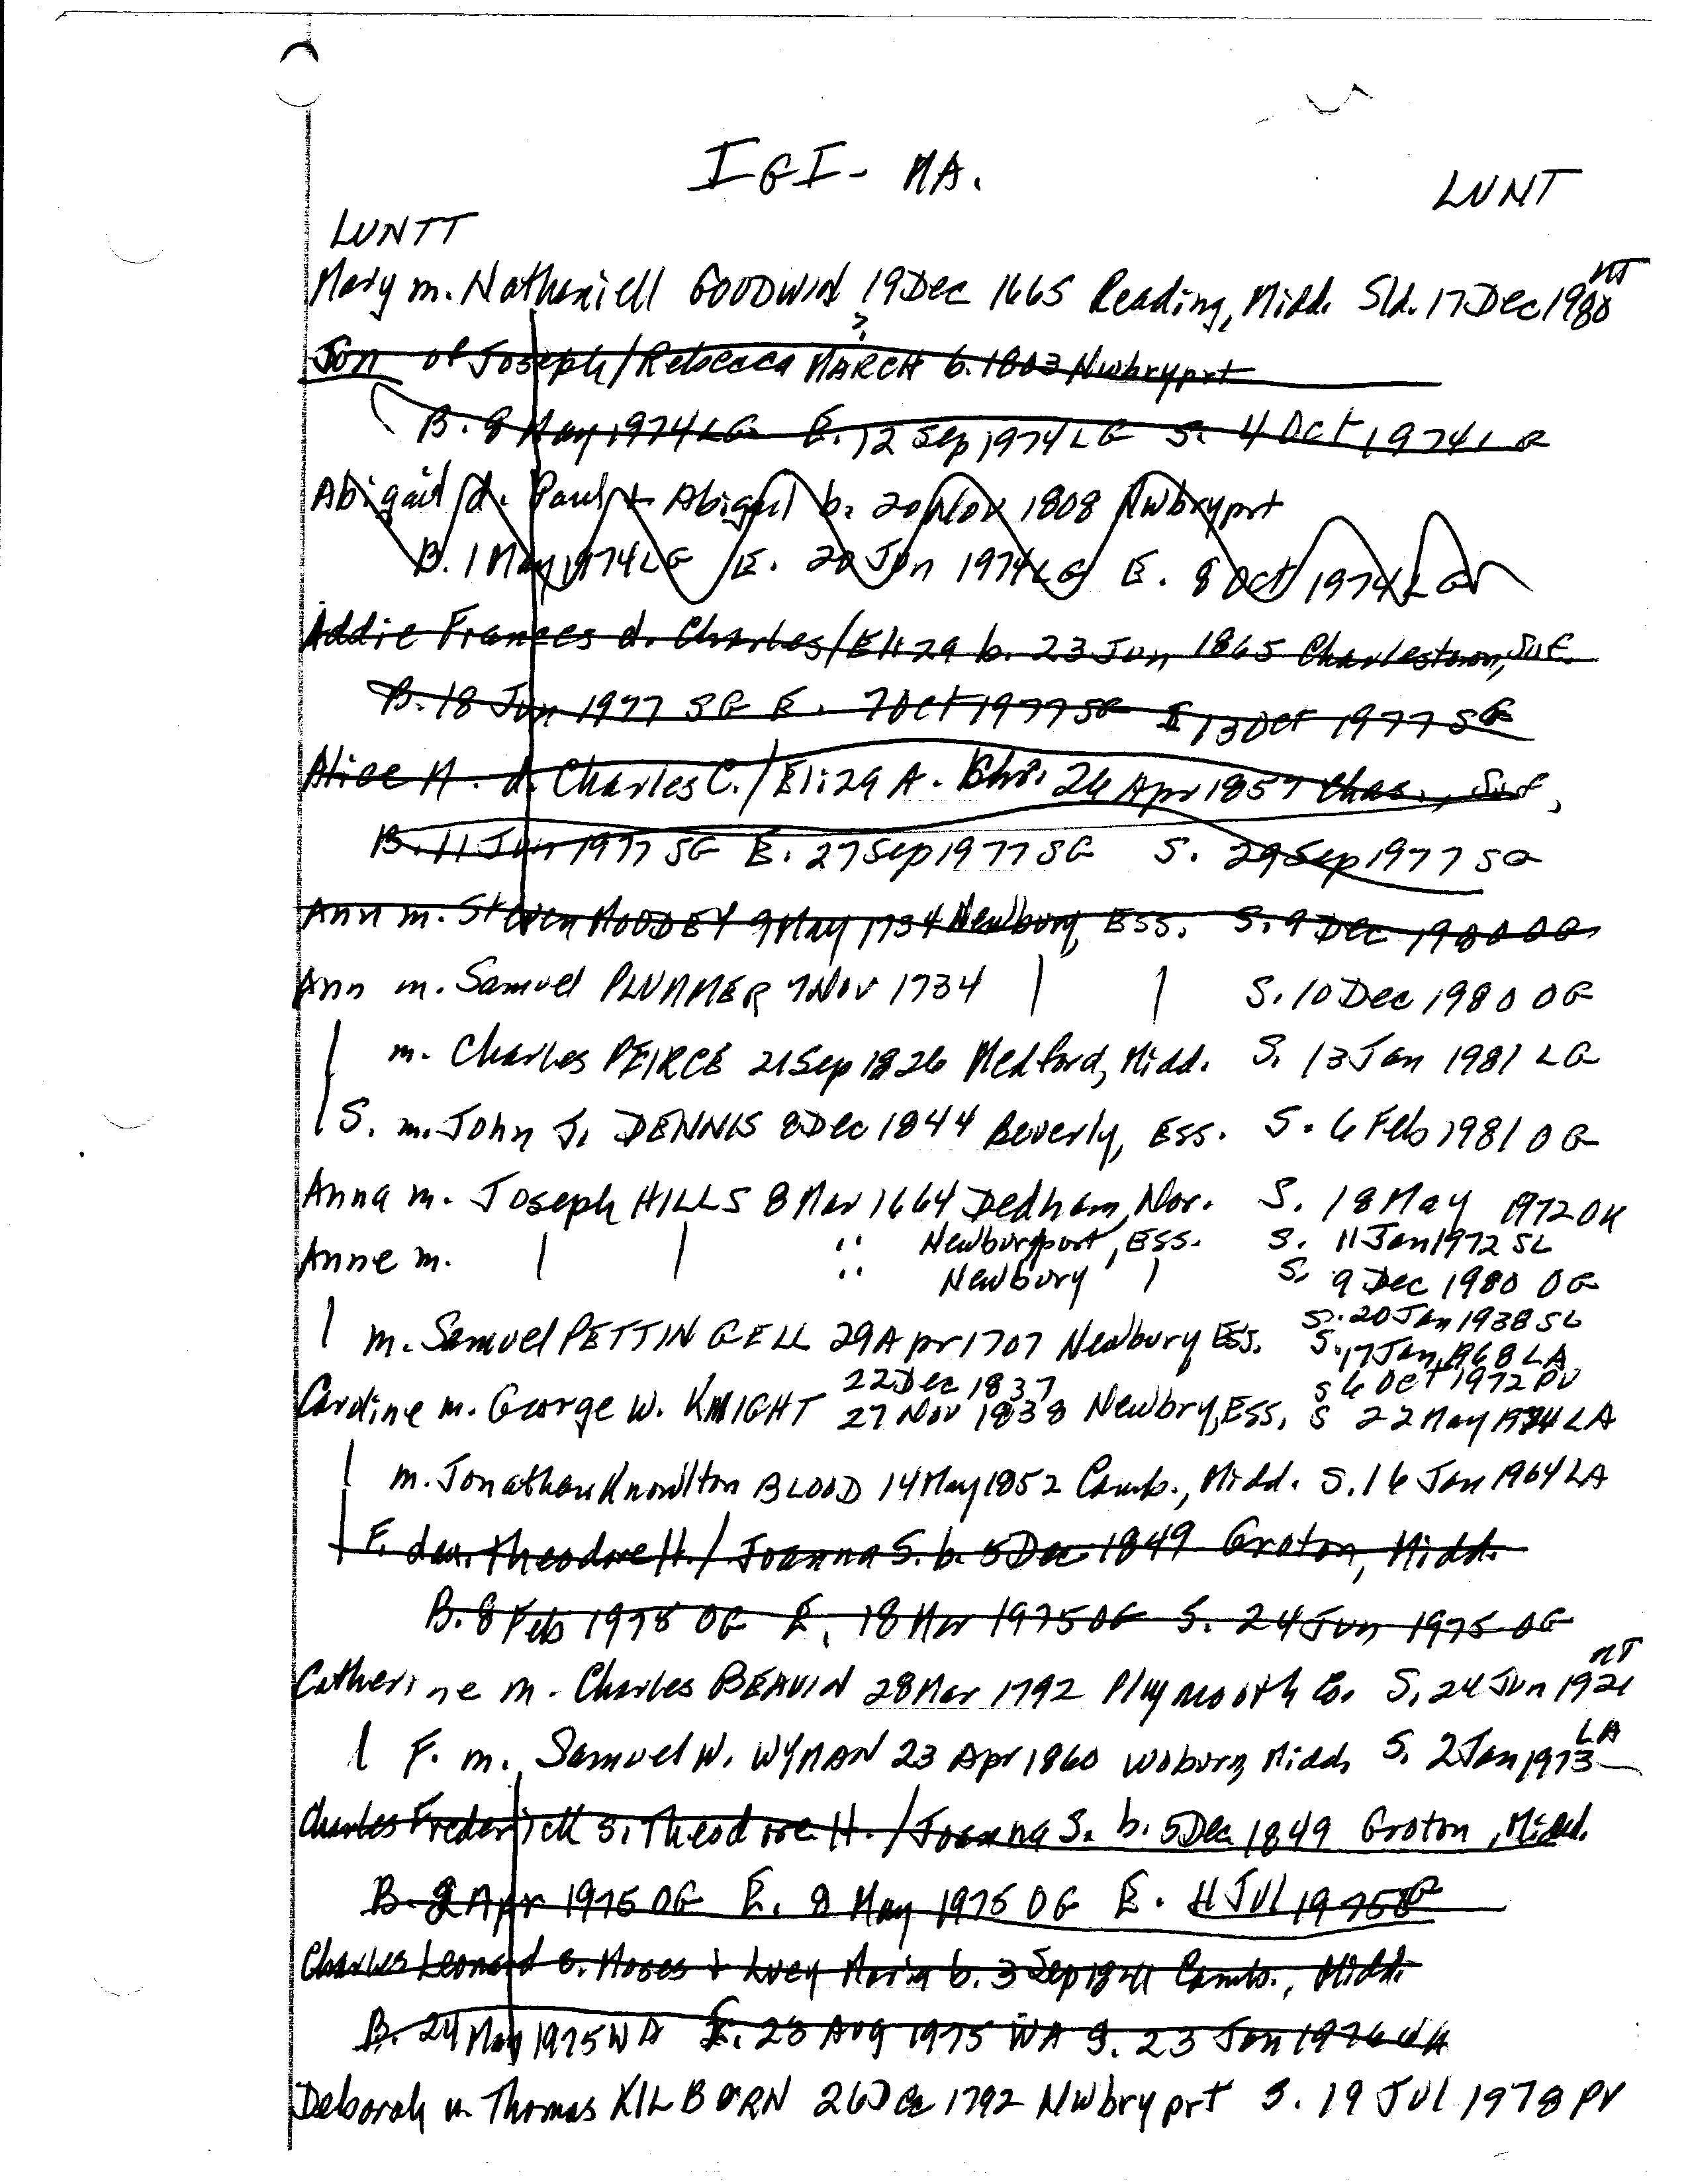 IGI - MA.
LUNT
LUNTT
Mary m. Nathaniell GOODWIN 19 Dec 1665 Reading, Midd. Sld. 17 Dec 1980 MT
Son of Joseph/Rebecca MARCH b. 1803 Nwbryprt
B. 8 May 1974 LG E. 12 Sep 1974 LG S. 4 Oct 1974 LG
Abigail d. Paul + Abigail b. 20 Nov 1808 Nwbryprt
B. 1 May 1974 LG E. 20 Jun 1974 LG E. 8 Oct 1974 LG
Addie Frances d. Charles/Eliza b. 23 Jun 1865 Charlestown, Suf.
B. 18 Jun 1977 SG E. 7 Oct 1977 SG S 13 Oct 1977 SG
Alice M. d. Charles C./Eliza A. Chr. 26 Apr 1857 Chas., Suf,
B. 11 Jun 1977 SG E. 27 Sep 1977 SG S. 29 Sep 1977 SG
Ann m. Steven MOODEY 9 May 1734 Newbury, Ess. S. 9 Dec 1980 OG
Ann m. Samuel PLUMMER 7 Nov 1734 | | S. 10 Dec 1980 OG
| m. Charles PEIRCE 21 Sep 1826 Medford, Midd. S. 13 Jan 1981 LG
| S. m. John J. DENNIS 8 Dec 1844 Beverly, Ess. S. 6 Feb 1981 OG
Anna m. Joseph HILLS 8 Mar 1664 Dedham, Nor. S. 18 May 1972 OK
Anne m. | | " Newburyport, Ess. S. 11 Jan 1972 SL
" Newbury | S. 9 Dec 1980 OG
S. 20 Jan 1938 SL
| m. Samuel PETTINGELL 29 Apr 1707 Newbury Ess. S. 17 Jan 1968 LA
22 Dec 1837 S 6 Oct 1972 PV
Caroline m. George W. KNIGHT 27 Nov 1838 Newbry, Ess. S 22 May 1974 LA
| m. Jonathan Knowlton BLOOD 14 May 1852 Camb., Midd. S. 16 Jan 1964 LA
| F. dau. Theodore H./Joanna S. b. 5 Dec 1849 Groton, Midd.
B. 8 Feb 1975 OG E. 18 Mar 1975 OG S. 24 Jun 1975 OG
Catherine m. Charles BEAVIN 28 Mar 1792 Plymooth Co. S. 24 Jun 1921 MT
| F. m. Samuel W. WYMAN 23 Apr 1860 Woburn, Midd, S. 2 Jan 1973 LA
Charles Frederick s. Theodore H./Joanna S. b. 5 Dec 1849 Groton, Midd.
B. 2 Apr 1975 OG E. 8 May 1975 OG E. 11 Jul 1975 OG
Charles Leonard s. Moses + Lucy Maria b. 3 Sep 1841 Camb., Midd.
B. 24 May 1975 WA E. 23 Aug 1975 WA S. 23 Jan 1976 WA
Deborah m. Thomas KILBORN 26 Dec 1792 Nwbryprt S. 19 Jul 1978 PV